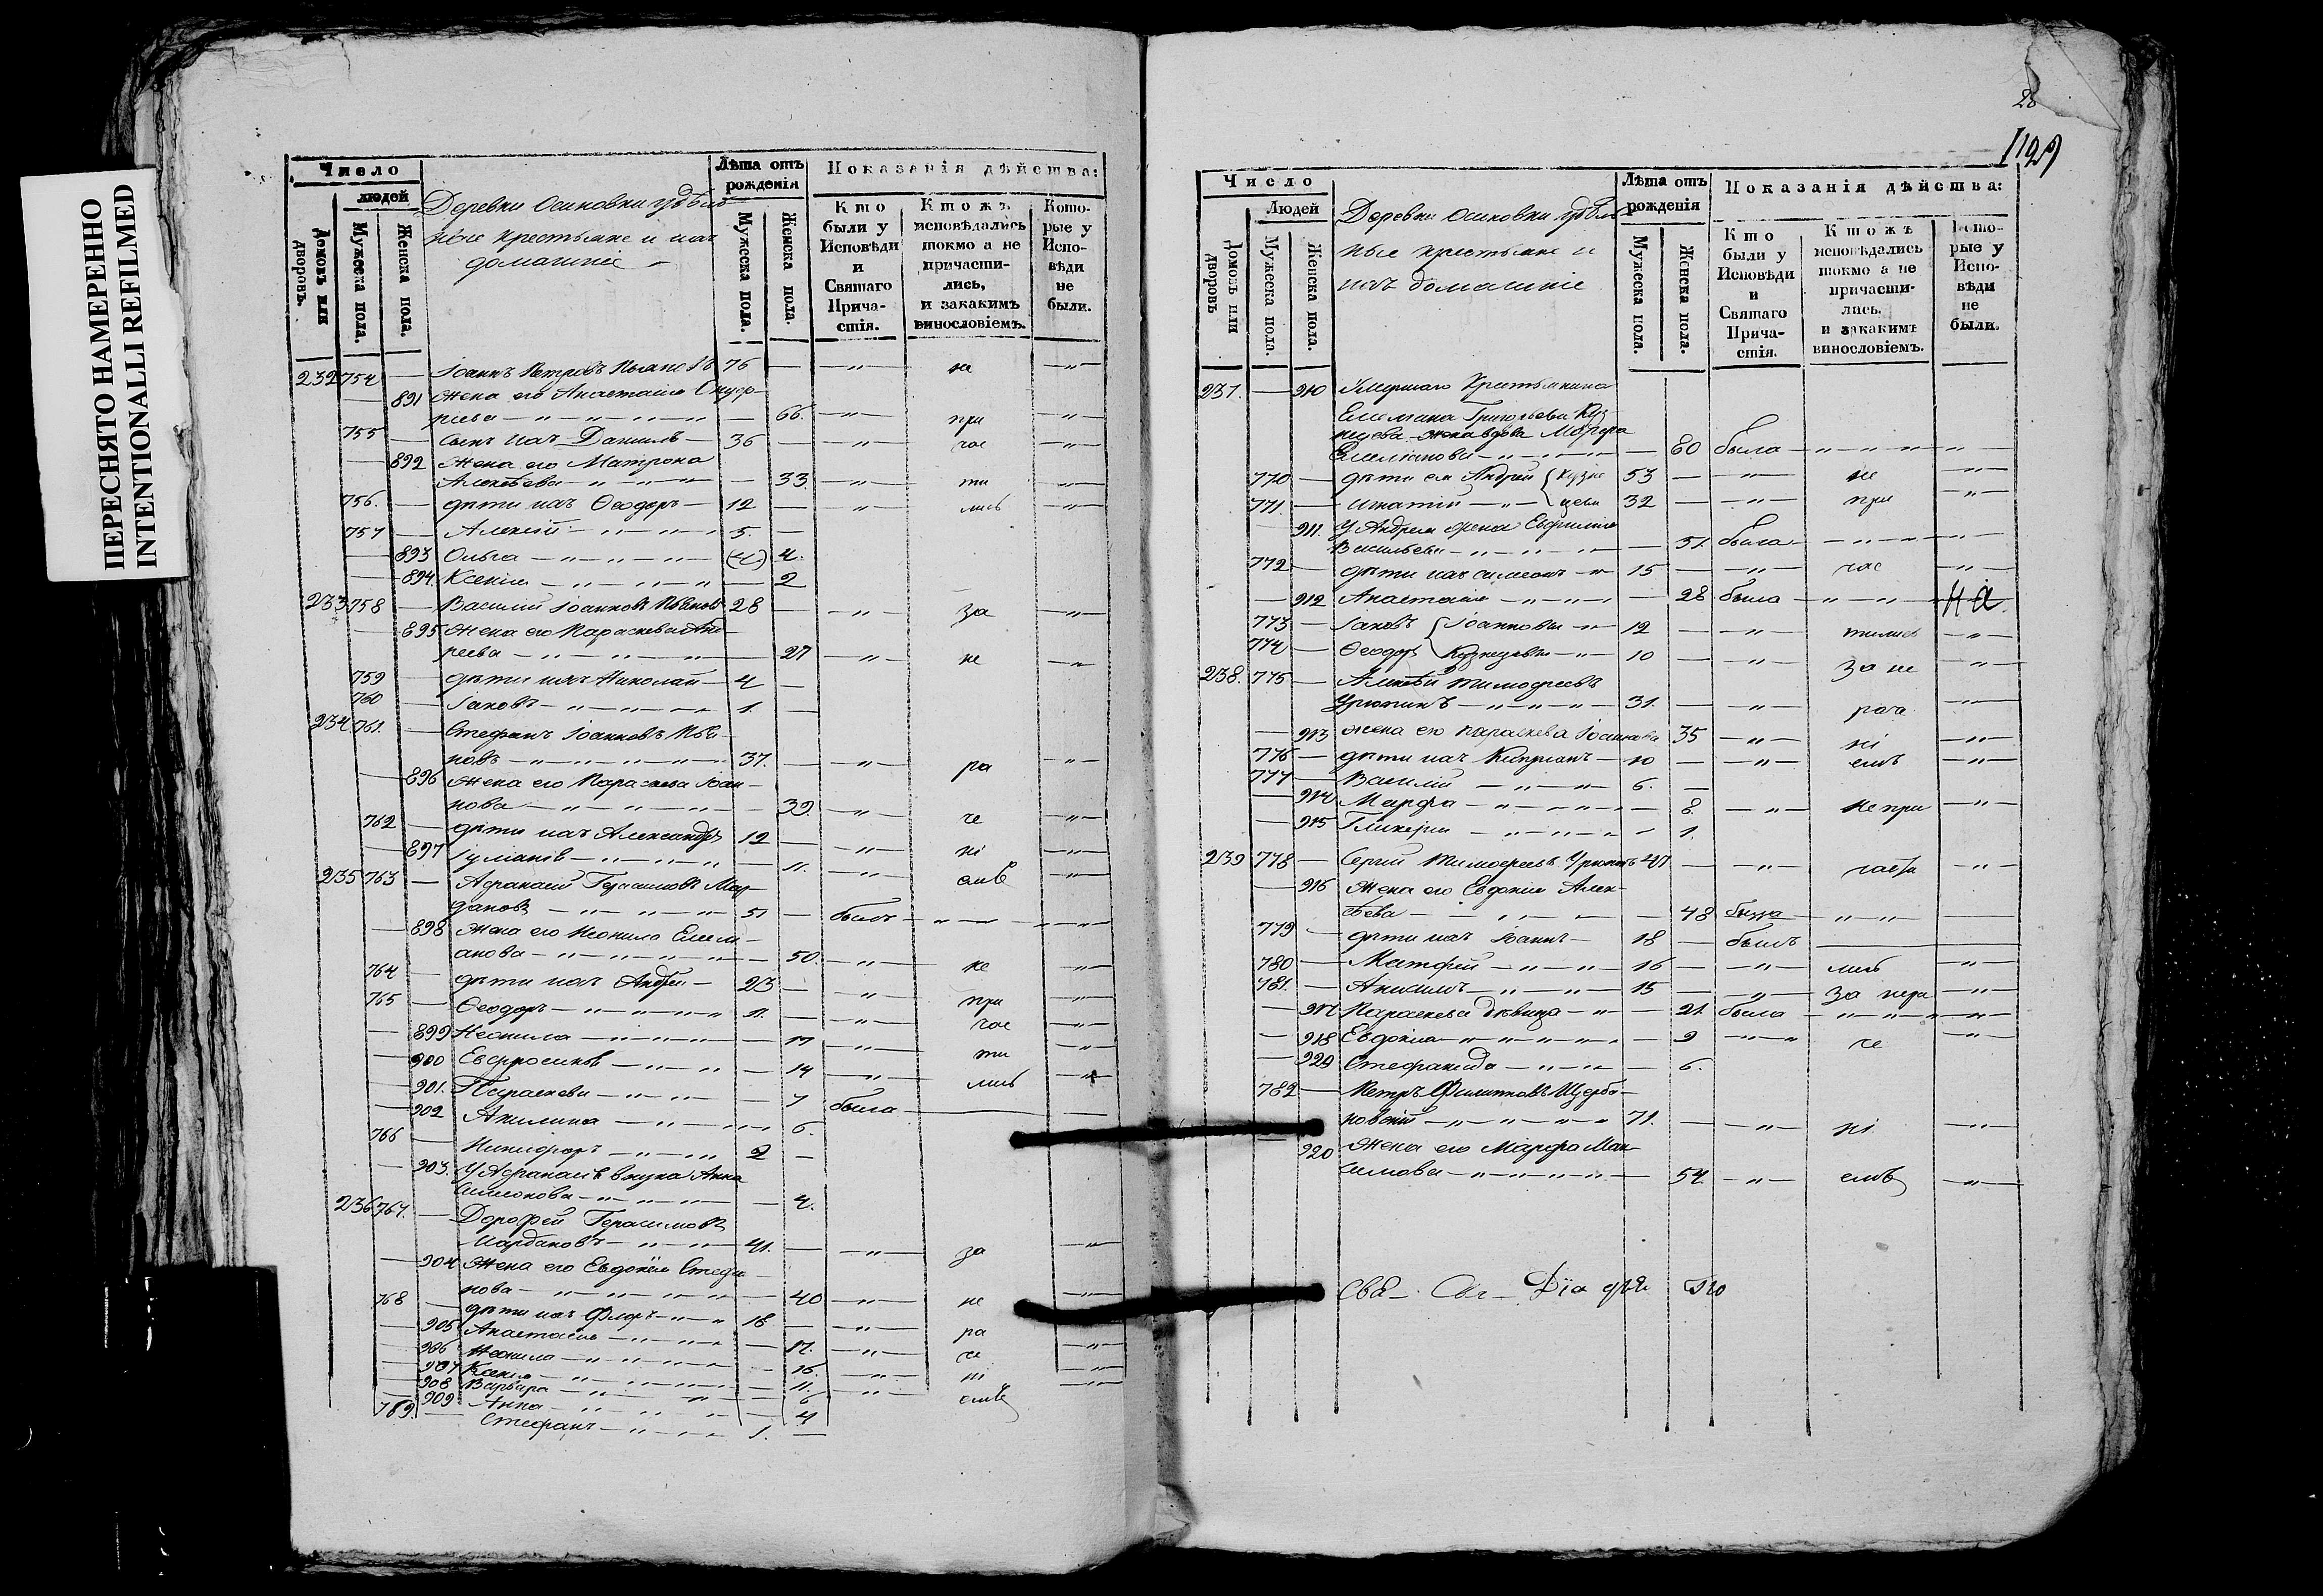 ПЕРЕСНЯТО НАМЕРЕННО
INTENTIONALLI REFILMED
Число
людей
Домовъ или дворовъ.
Мужеска пола.
Женска пола.
Деревни Осиновки удѣль
ные крестьяне и ихъ
домашніе
Лѣта отъ рожденія
Мужеска пола.
Женска пола.
Показанія дѣйства:
Кто были у Исповѣди и Святаго Причастія.
Ктожъ исповѣдались токмо а не причастились, и закакимъ винословіемъ.
Которые у Исповѣди не были.
232 754 — Іоаннъ Петровъ 76 — — „ — не — „ —
— 891 Жена его Анастасія
— 66. — „ — при — „ —
755 — сынъ ихъ Даніилъ — 36 — — „ — час — „ —
— 892 Жена его Матрона
Алексѣева — „ — „ — 33. — „ — ти — „ —
756. — дѣти ихъ Ѳеодоръ — 12 — — „ — лись — „ —
757 — Алексѣй — „ — „ — 5. —
— 893 Ольга — „ — „ — (4) 4.
— 894. Ксенія — „ — „ — 2
233 758 — Василій Іоанновъ 28 — — „ — за — „ —
— 895 Жена его Параскева Анд-
реева — „ — „ — 27 — „ — не — „
759 — дѣти ихъ Николай — 4 —
760 — Іаковъ — „ — „ — 1. —
234 761. — Стефанъ Іоанновъ
новъ — „ — „ — 37. — — „ — ра — „ —
— 896 Жена его Параскева Іоан-
нова — „ — „ — 39. — „ — че — „ —
762 — дѣти ихъ Александръ 12 — — „ — ні — „ —
— 897 — „ — „ — 11. — „ — емъ — „ —
235 763 — Афанасій Герасимовъ Мар-
дановъ — „ — „ — 51 — былъ — „ — „ —
— 898 Жена его Неонила Емели-
анова — „ — „ — 50. — „ — не — „ —
764 — дѣти ихъ Андрей — 23 — — „ — при — „ —
765 — Ѳеодоръ — „ — „ — 11. — — „ — час — „ —
— 899 Неонила — „ — „ — 17 — „ — ти — „ —
— 900 Евфросинія — „ — „ — 14 — „ — лись — „ —
— 901. Параскева — „ — „ — 7 была —
— 902 Акилина — „ — „ 6.
766 — Никифоръ — „ — „ 2 —
— 903. У Афанасія внука Анна
Симеонова — „ — „ — 4.
236 767. — Дорофей Герасимовъ
Мардановъ — „ — „ — 41. — — „ — за — „ —
— 904 Жена его Евдокія Стефа-
нова — „ — „ — 40 — „ — не — „ —
768 — дѣти ихъ Флоръ — „ — „ 18 — — „ — ра — „ —
— 905 Анастасія — „ — „ — 17. — „ — че — „ —
— 906 Неонила — „ — „ — 16. — „ — ні — „ —
— 907 Ксенія — „ — „ — 11. — „ — емъ — „ —
— 908 Варвара — „ — „ — 6
— 909 Анна — „ — „ — 4
769. — Стефанъ — „ — „ 1. —
28
Число
Людей
Домовъ или дворовъ
Мужеска пола.
Женска пола.
Деревни Осиновки удѣль
ные крестьяне и
ихъ домашніе
Лѣта отъ рожденія
Мужеска пола.
Женска пола.
Показанія дѣйства:
Кто были у Исповѣди и Святаго Причастія.
Ктожъ исповѣдались токмо а не причастились. и закакимъ винословіемъ.
Которые у Исповѣди не были.
237. — 910 Умершаго Крестьянина
Емельяна Григорьева Куз
нецова жена вдова Марфа
Емеліянова — „ — „ — 80 была — „ — „ — „ —
770 — дѣти ея Андрей { Кузне 53 — — „ — не — „ —
771 — Игнатій — „ — { цовы 32 — — „ — при — „ —
— 911. У Андрея жена Евфимія
Васильева — „ — „ — 51. была — „ — „ —
772 — дѣти ихъ Симеонъ — „ — 15 — — „ — час — „ —
— 912 Анастасія — „ — „ — 28 была — „ — „ — на
773 — Іаковъ { Іоанновы — „ — 12 — — „ — тились — „ —
774 — Ѳеодоръ { Кузнецовы — „ — 10 — — „ — за не — „ —
238. 775 — Алексѣй Тимофеевъ
Урюпинъ — „ — „ — 31. — — „ — рача — „ —
— 913 жена его Параскева Іоаннова 35 — „ — ні — „ —
776 — дѣти ихъ Кипріанъ — 10 — — „ — емъ — „ —
777 — Василій — „ — „ — 6. —
— 914 Марфа — „ — „ — 8. — „ — не при — „ —
— 915 Гликерія — „ — „ — 1.
239 778 — Сергій Тимофеевъ Урюпинъ 47 — — „ — часті — „ —
— 916 Жена его Евдокія Алек-
сѣева — „ — 48 была — „ — „ —
779 — дѣти ихъ Іоаннъ — 18 — былъ —
780 — Матфей — „ — „ — 16 — — „ — лись — „ —
781. — Анисимъ — „ — „ — 15 — — „ — за нера — „ —
— 917 Параскева дѣвица — „ — 21 была — „ — „ — „ —
— 918 Евдокія — „ — „ — 9 — „ — че — „ —
— 919 Стефанида — „ — „ — 6.
782 — Петръ Филипповъ Щерба-
ковскій — „ — „ — 71. — — „ — ні — „ —
920 Жена его Марфа Мак-
симова — „ — „ — 54. — „ — емъ — „ —